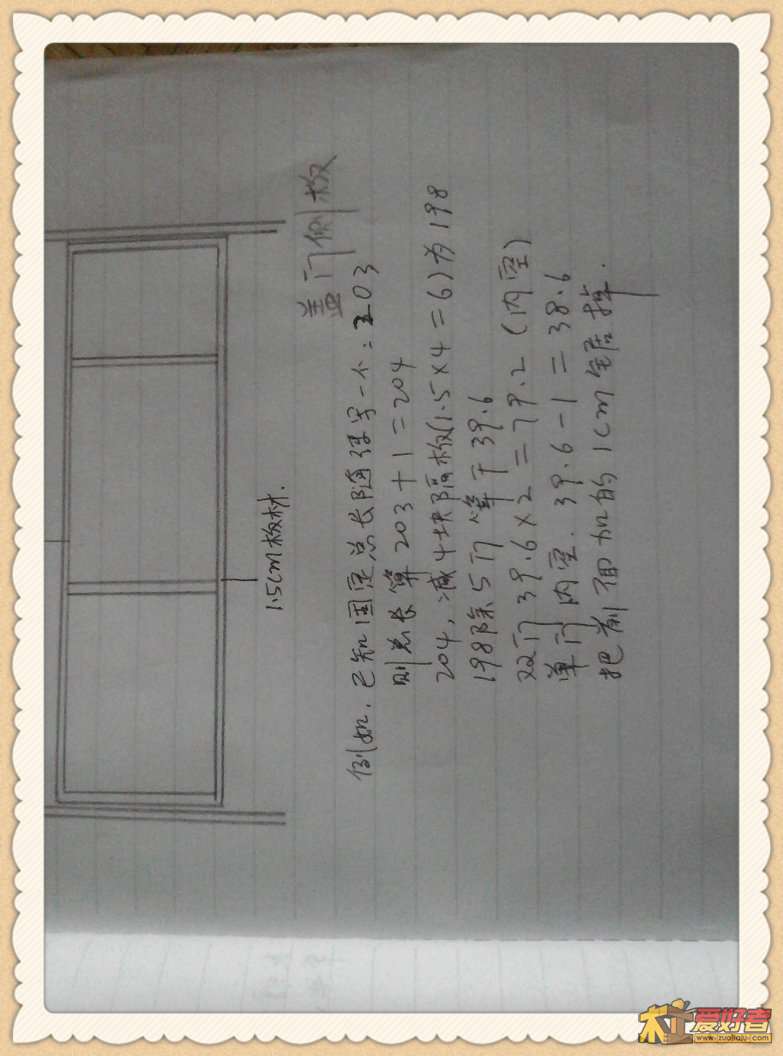 1.5cm板材.
盖门侧板
例如.已知固定总长随便写一个:203
则总长算 203+1=204
204,减4块隔板(1.5×4=6)为198
198除5门等于39.6
双门 39.6×2=79.2(内空)
单门内空.39.6-1=38.6
把前面加的1cm锯掉.
木工爱好者
www.zuojiaju.com